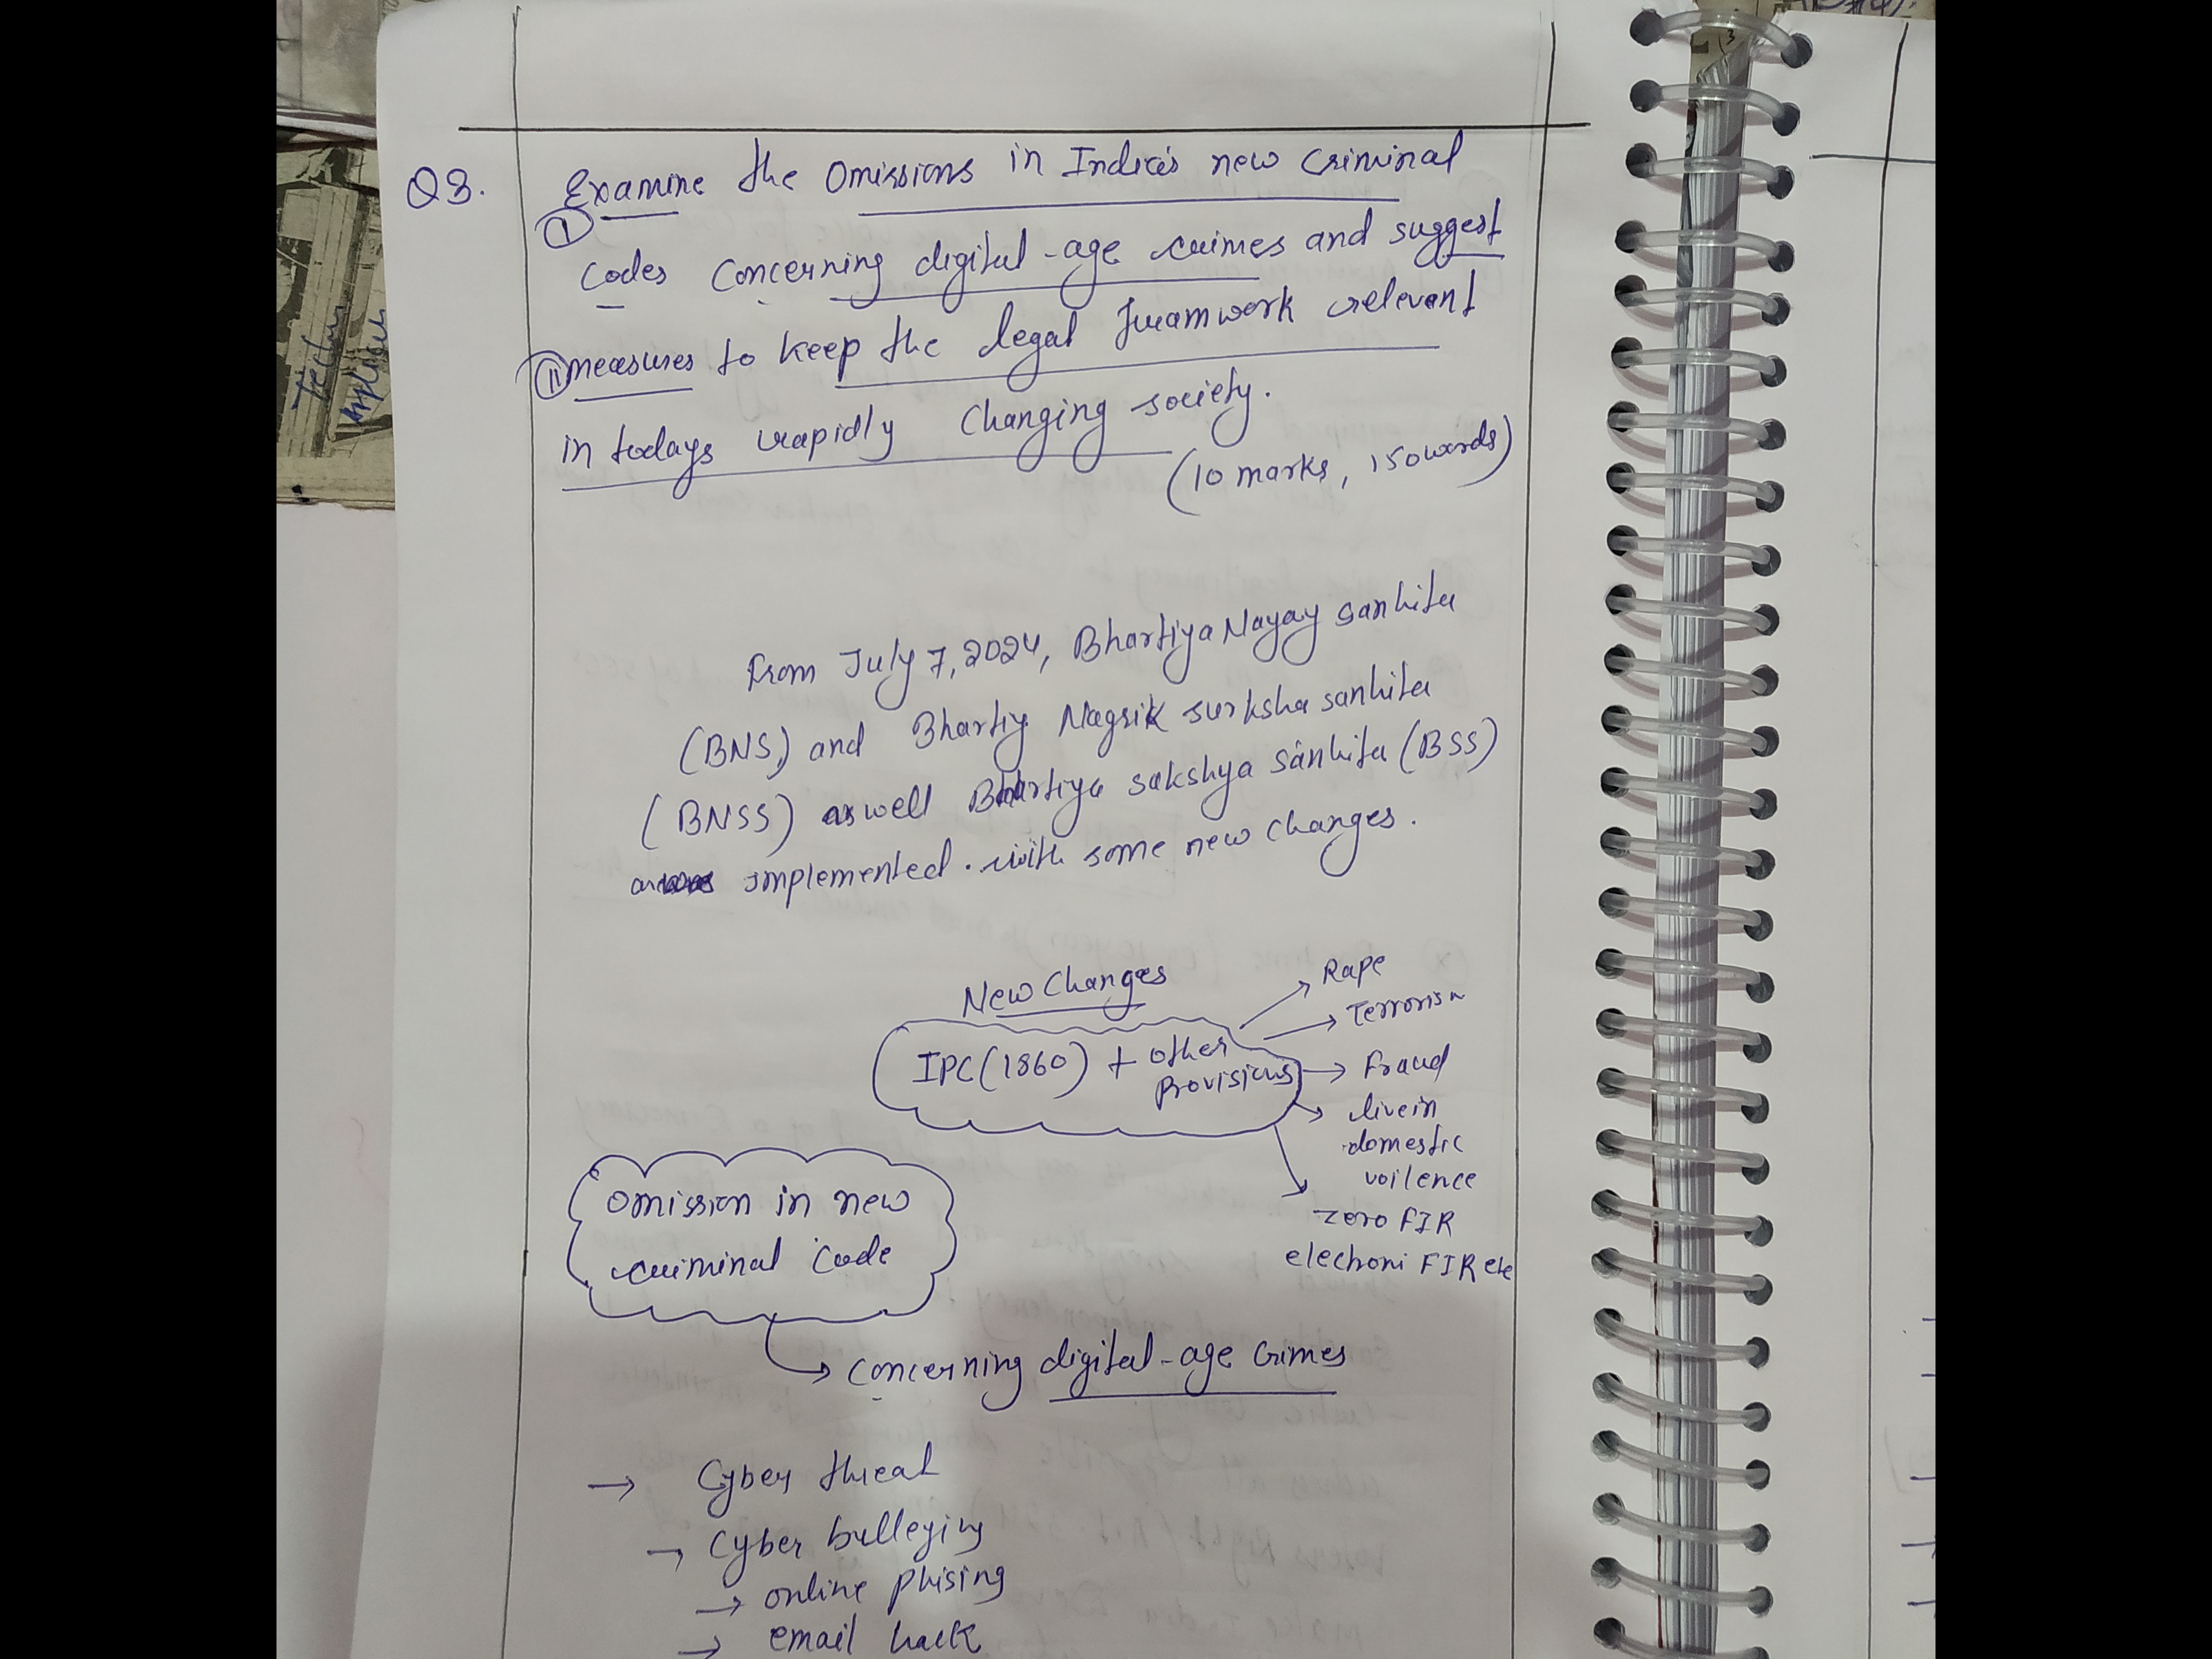 Q3. Examine the Omissions in India's new Criminal
I
Codes Concerning digital-age crimes and suggest
II measures to keep the legal framwork relevent
in todays rapidly Changing society.
(10 marks, 150 words)
From July 7, 2024, Bhartiya Nayay Sanhita
(BNS) and Bhartiy Nagrik surksha sanhita
(BNSS) as well Bhartiya sakshya sanhita (BSS)
are implemented. with some new changes.
New Changes
IPC (1860) + other
Provisions
→ Rape
→ Terrorism
→ Fraud
→ livein
domestic
voilence
→ zero FIR
electroni FIR etc
Omission in new
criminal Code
→ Concerning digital-age Crimes
→ Cyber threat
→ Cyber bulleying
→ online Phising
→ email hack